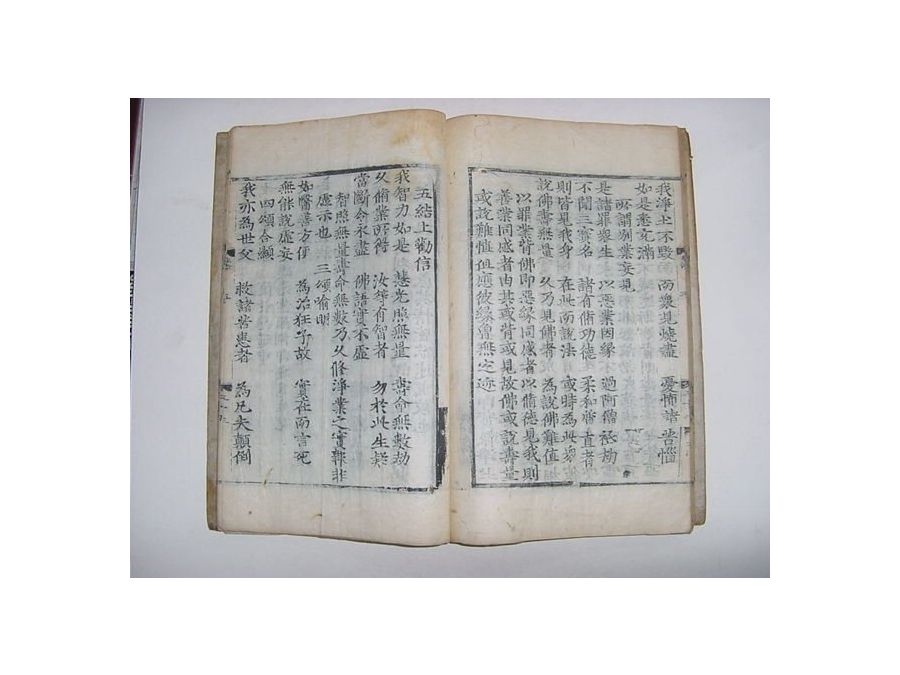 我淨土不毀 而衆見燒盡 憂怖諸苦惱
如是悉充滿
所謂別業妄見
是諸罪衆生 以惡業因緣 過阿僧祇劫
不聞三寶名 諸有脩功德 柔和質直者
則皆見我身 在此而說法 或時為此衆
說佛壽無量 久乃見佛者 為說佛難值
以罪業背佛即惡緣同感者以脩德見我則
善業同感者由其或背或見故佛或說壽量
或說難值且應彼緣曾無定迹
五結上勸信
我智力如是 慧光照無量 壽命無數劫
久脩業所得 汝等有智者 勿於此生疑
當斷令永盡 佛語實不虛
智照無量壽命無數乃久修淨業之實報非
虛示也 三頌喻明
如醫善方便 為治狂子故 實在而言死
無能說虛妄
四頌合顯
我亦為世父 救諸苦患者 為凡夫顛倒